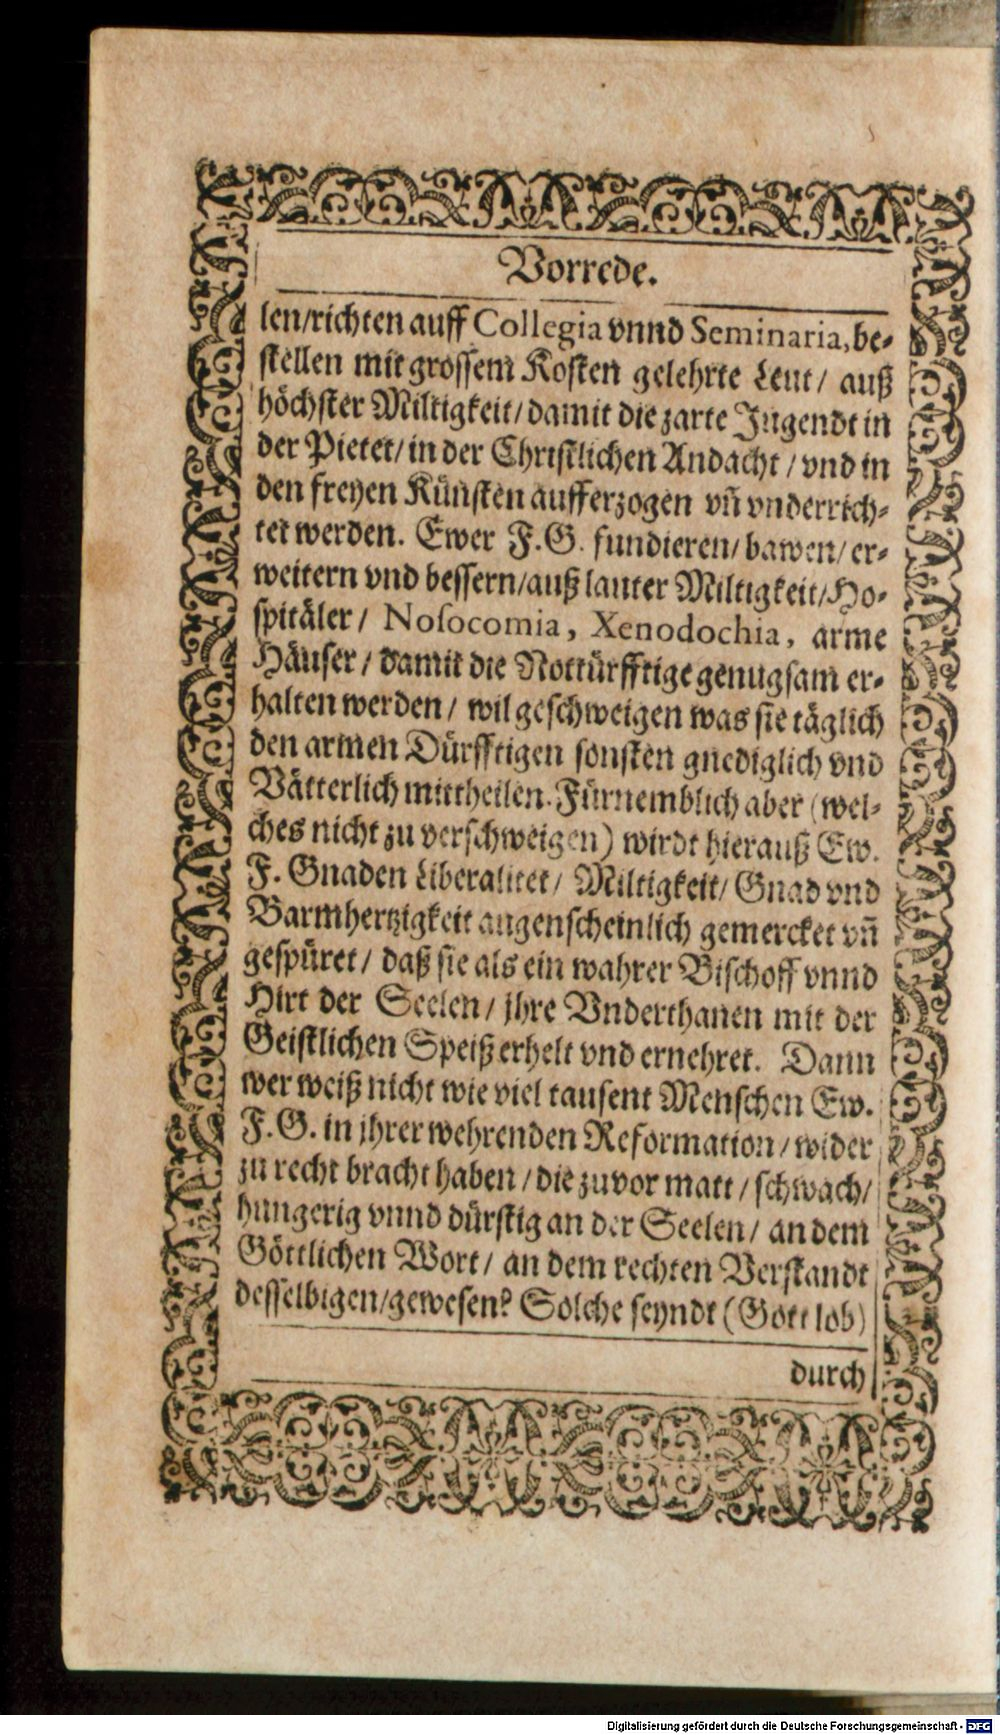 Vorrede.
len/richten auff Collegia vnnd Seminaria, be-
stellen mit grossem Kosten gelehrte Leut/ auß
höchster Miltigkeit/damit die zarte Jugendt in
der Pietet/in der Christlichen Andacht/vnd in
den freyen Künsten aufferzogen vñ vnderrich-
tet werden. Ewer F.G. fundieren/bawen/er-
weitern vnd bessern/auß lauter Miltigkeit/Ho-
spitäler/ Nosocomia, Xenodochia, arme
Häuser/damit die Nottürfftige genugsam er-
halten werden/ wil geschweigen was sie täglich
den armen Dürfftigen sonsten gnediglich vnd
Vätterlich mittheilen. Fürnemblich aber (wel-
ches nicht zu verschweigen) wirdt hierauß Ew.
F. Gnaden Liberalitet/ Miltigkeit/Gnad vnd
Barmhertzigkeit augenscheinlich gemercket vñ
gespüret/ daß sie als ein wahrer Bischoff vnnd
Hirt der Seelen/ jhre Vnderthanen mit der
Geistlichen Speiß erhelt vnd ernehret. Dann
wer weiß nicht wie viel tausent Menschen Ew.
F.G. in jhrer wehrenden Reformation/wider
zu recht bracht haben/die zuvor matt/schwach/
hungerig vnnd dürstig an der Seelen/ an dem
Göttlichen Wort/ an dem rechten Verstandt
desselbigen/gewesen? Solche seyndt (Gott lob)
durch
Digitalisierung gefördert durch die Deutsche Forschungsgemeinschaft - DFG